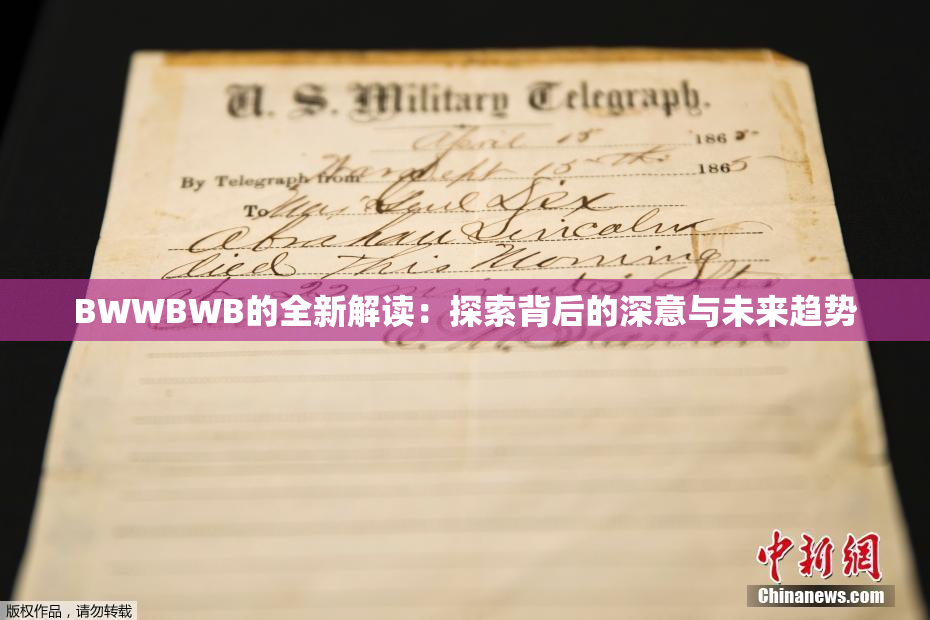 U. S. Military Telegraph.
April 15 1865
By Telegraph from War Dept 15th 1865
To Maj Genl Dix
Abraham Lincoln
died This Morning
at 22 minutes after
BWWBWB的全新解读：探索背后的深意与未来趋势
E. M. Stanton
中新网
Chinanews.com
版权作品，请勿转载